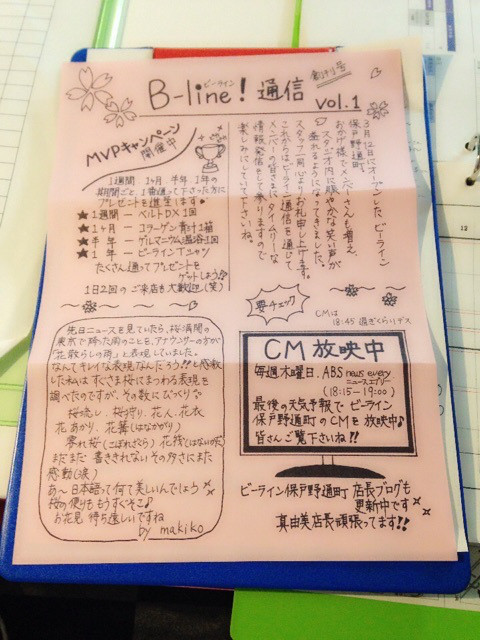 ビーライン
B-line! 通信
創刊号
vol.1
3月12日にオープンした ビーライン
保戸野通町。
おかげ様でメンバーさんも増え、
スタジオ内に賑やかな笑い声が
溢れるようになってきました。
スタッフ一同心よりお礼申し上げます。
これからはビーライン通信を通じて
メンバーの皆さまにタイムリーな
情報発信をして参りますので
楽しみにしていて下さいね。
MVPキャンペーン
開催中
1週間 1ヶ月 半年 1年の
期間ごと、1番通って下さった方に
プレゼントを進呈します
★ 1週間 ー ベルトDX1回
★ 1ヶ月 ー コラーゲン青汁1箱
★ 半年 ー ゲルマニウム温浴1回
★ 1年 ー ビーラインTシャツ
たくさん通ってプレゼントを
ゲットしよう
1日2回のご来店も大歓迎(笑)
先日ニュースを見ていたら、桜満開の
東京で降った雨のことを、アナウンサーの方が
「花散らしの雨」と表現していました。
なんてキレイな表現なんだろう!!と感動
した私はすぐさま桜にまつわる表現を
調べたのですが、その数にびっくり
桜流し、桜狩り、花人、花衣
花あかり、花篝(はなががり)
零れ桜(こぼれざくら)
まだまだ書ききれないその多さにまた
感動(涙)
あ〜日本語って何て美しいんでしょう
桜の便りももうすぐそこ♪
お花見 待ち遠しいですね
by makiko
要チェック
CMは
18:45過ぎくらいデス
CM 放映中
毎週木曜日、ABS news every
(18:15〜19:00)
最後の天気予報で ビーライン
保戸野通町のCMを放映中♪
皆さんご覧下さいね!!
ビーライン保戸野通町 店長ブログも
更新中です
真由美店長頑張ってます!!